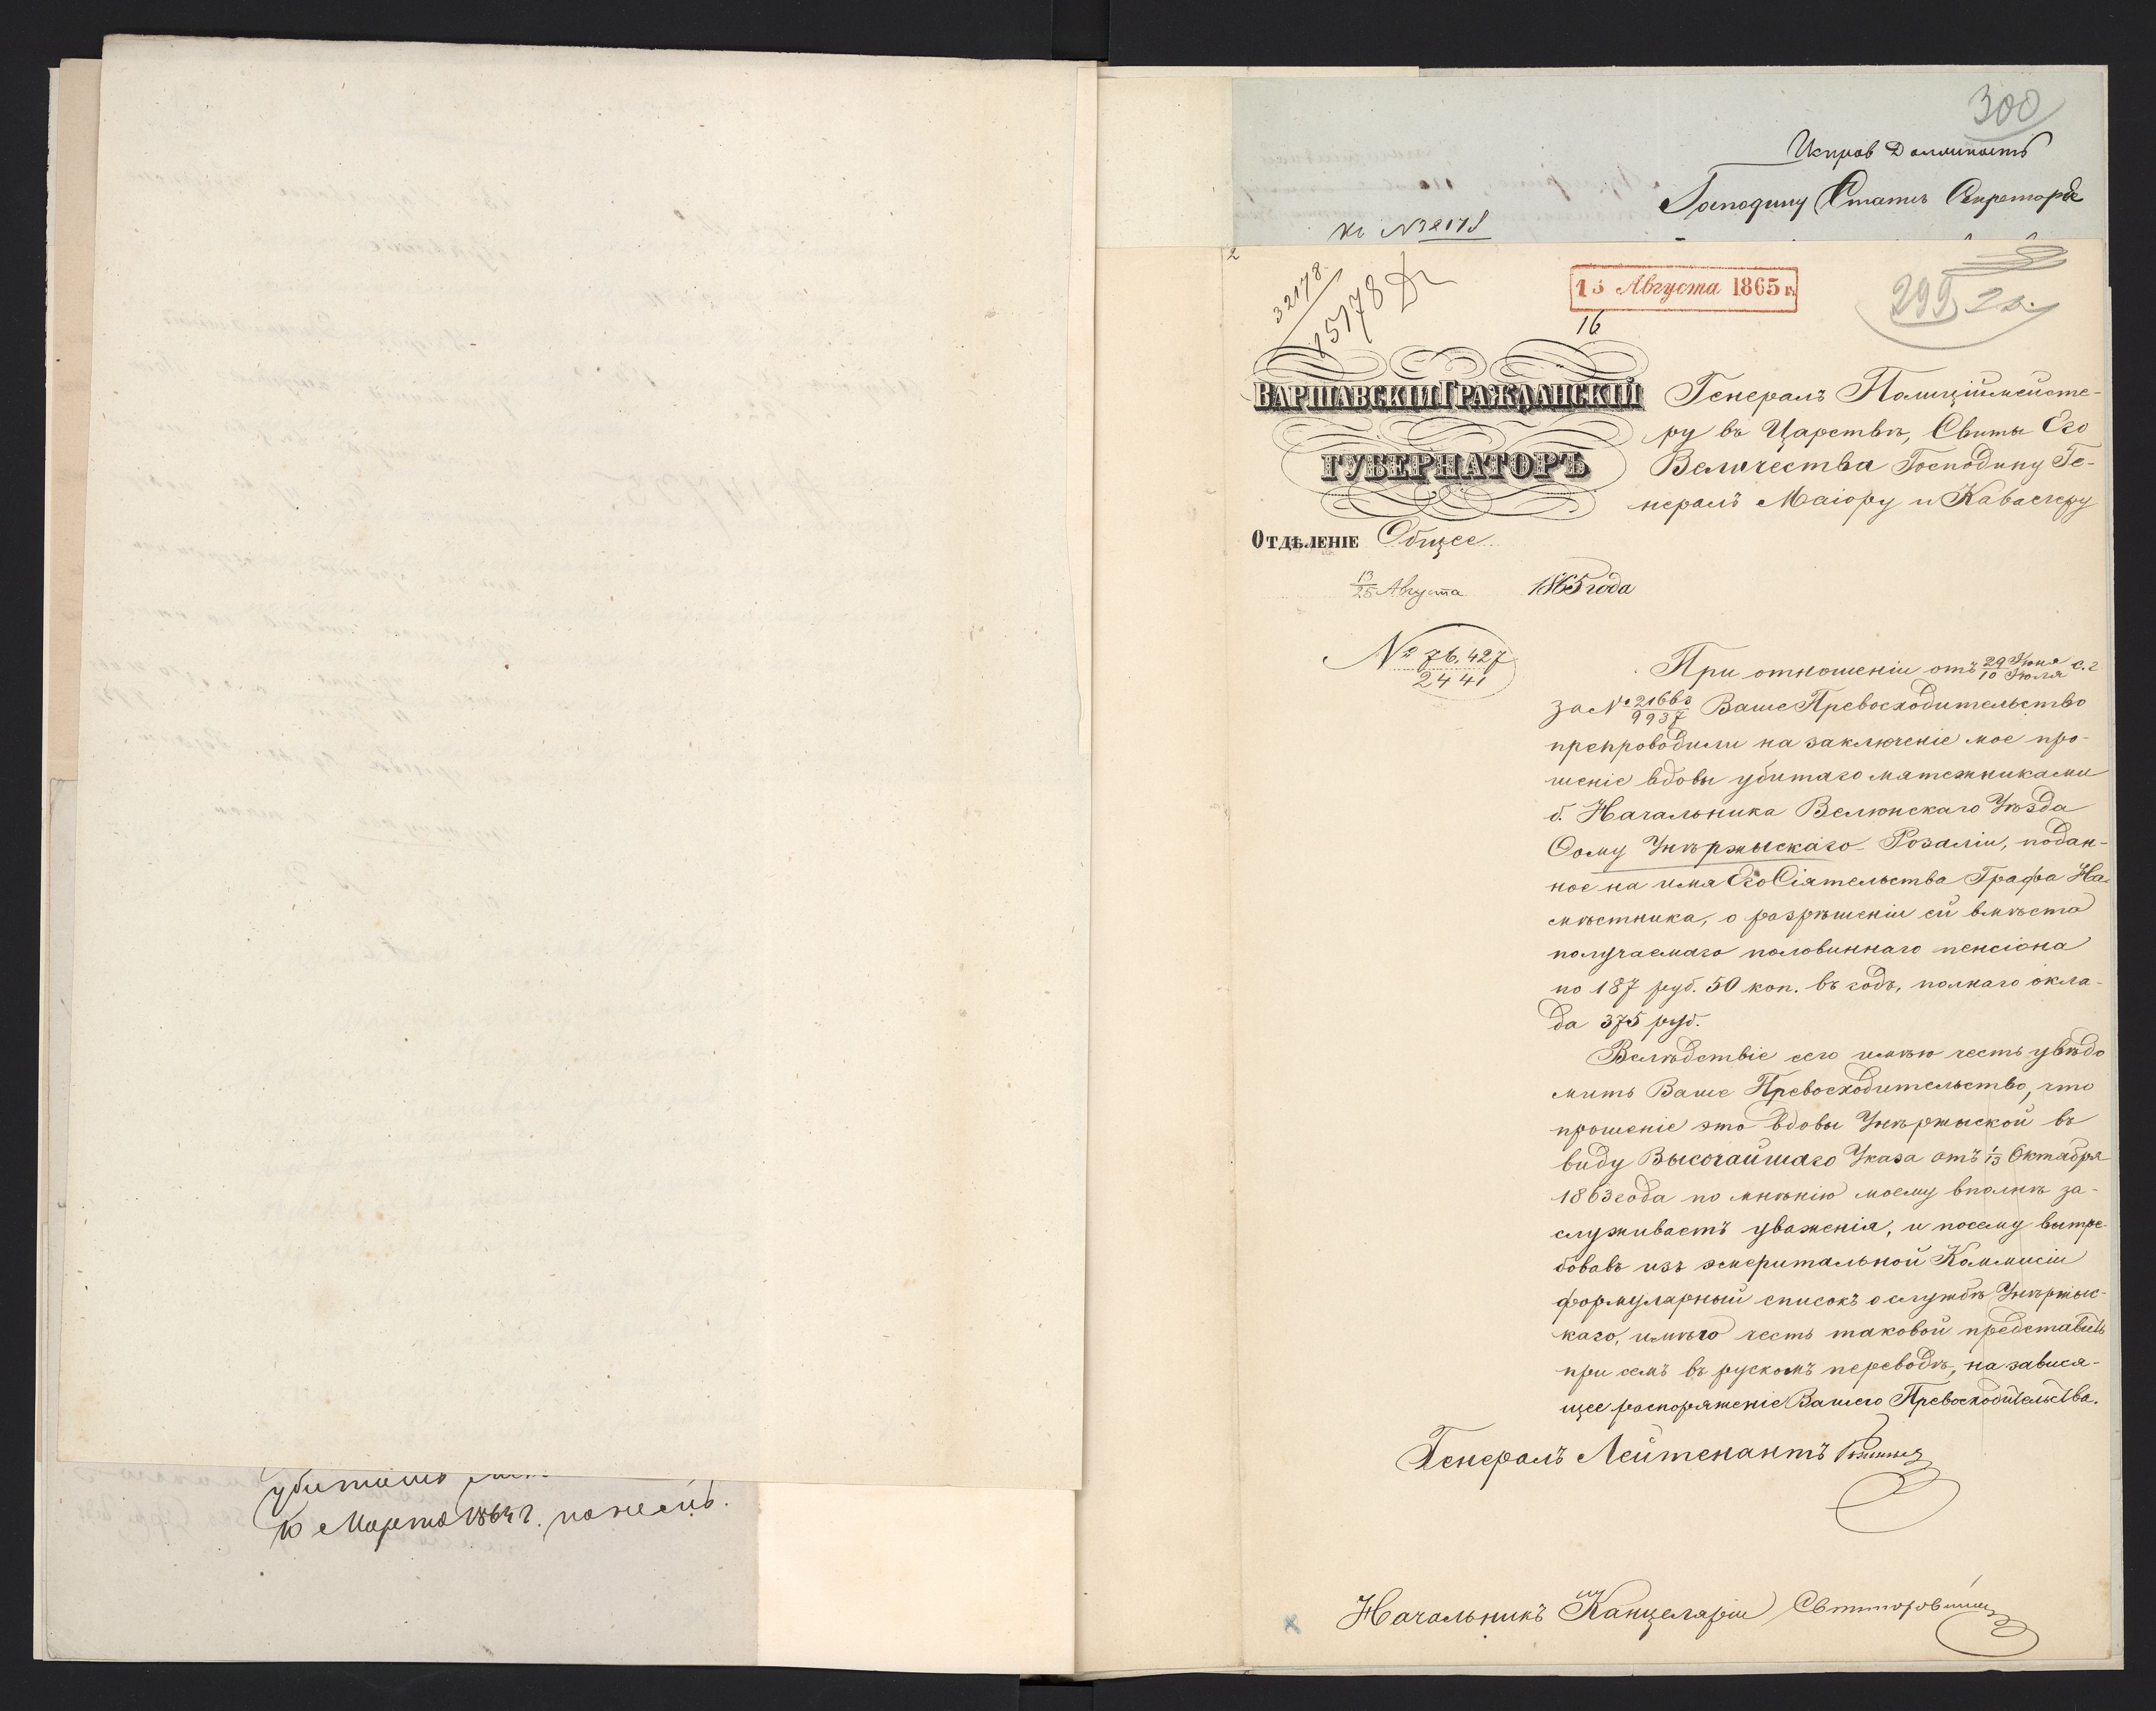 300
Исправ Должность
Господину Статсъ Секретарю
Къ № 32178
2
32178
15178
15 Августа 1865 г.
16
299
ВАРШАВСКІЙ ГРАЖДАНСКІЙ
ГУБЕРНАТОРЪ
ОТДѢЛЕНІЕ Общее
13/25 Августа 1865 года
№ 76,427
2441
Генералъ Полиціймейсте-
ру въ Царствѣ, Свиты Его
Величества Господину Ге-
нералъ Маіору и Кавалеру
При отношеніи отъ 29 Іюня/10 Іюля с. г
за № 21663/9937 Ваше Превосходительство
препроводили на заключеніе мое про-
шеніе вдовы убитаго мятежниками
б. Начальника Велюнскаго Уѣзда
Ѳому Унѣржыскаго Розаліи, подан-
ное на имя Его Сіятельства Графа На-
мѣстника, о разрѣшеніи ей вмѣсто
получаемаго половиннаго пенсіона
по 187 руб. 50 коп. въ годъ, полнаго окла-
да 375 руб.
Вслѣдствіе сего имѣю честь увѣдо
мить Ваше Превосходительство, что
прошеніе это вдовы Унѣржыской въ
виду Высочайшаго Указа отъ 1/13 Октября
1863 года по мнѣнію моему вполнѣ за-
служиваетъ уваженія, и посему вытре-
бовавъ изъ эмеритальной Коммисіи
формулярный списокъ о службѣ Унѣржыс-
каго, имѣю честь таковой представить
при семъ въ рускомъ переводѣ, на завися-
щее распоряженіе Вашего Превосходительства.
Генералъ Лейтенантъ
Начальникъ Канцеляріи
убитымъ
10 Марта 1864 г.